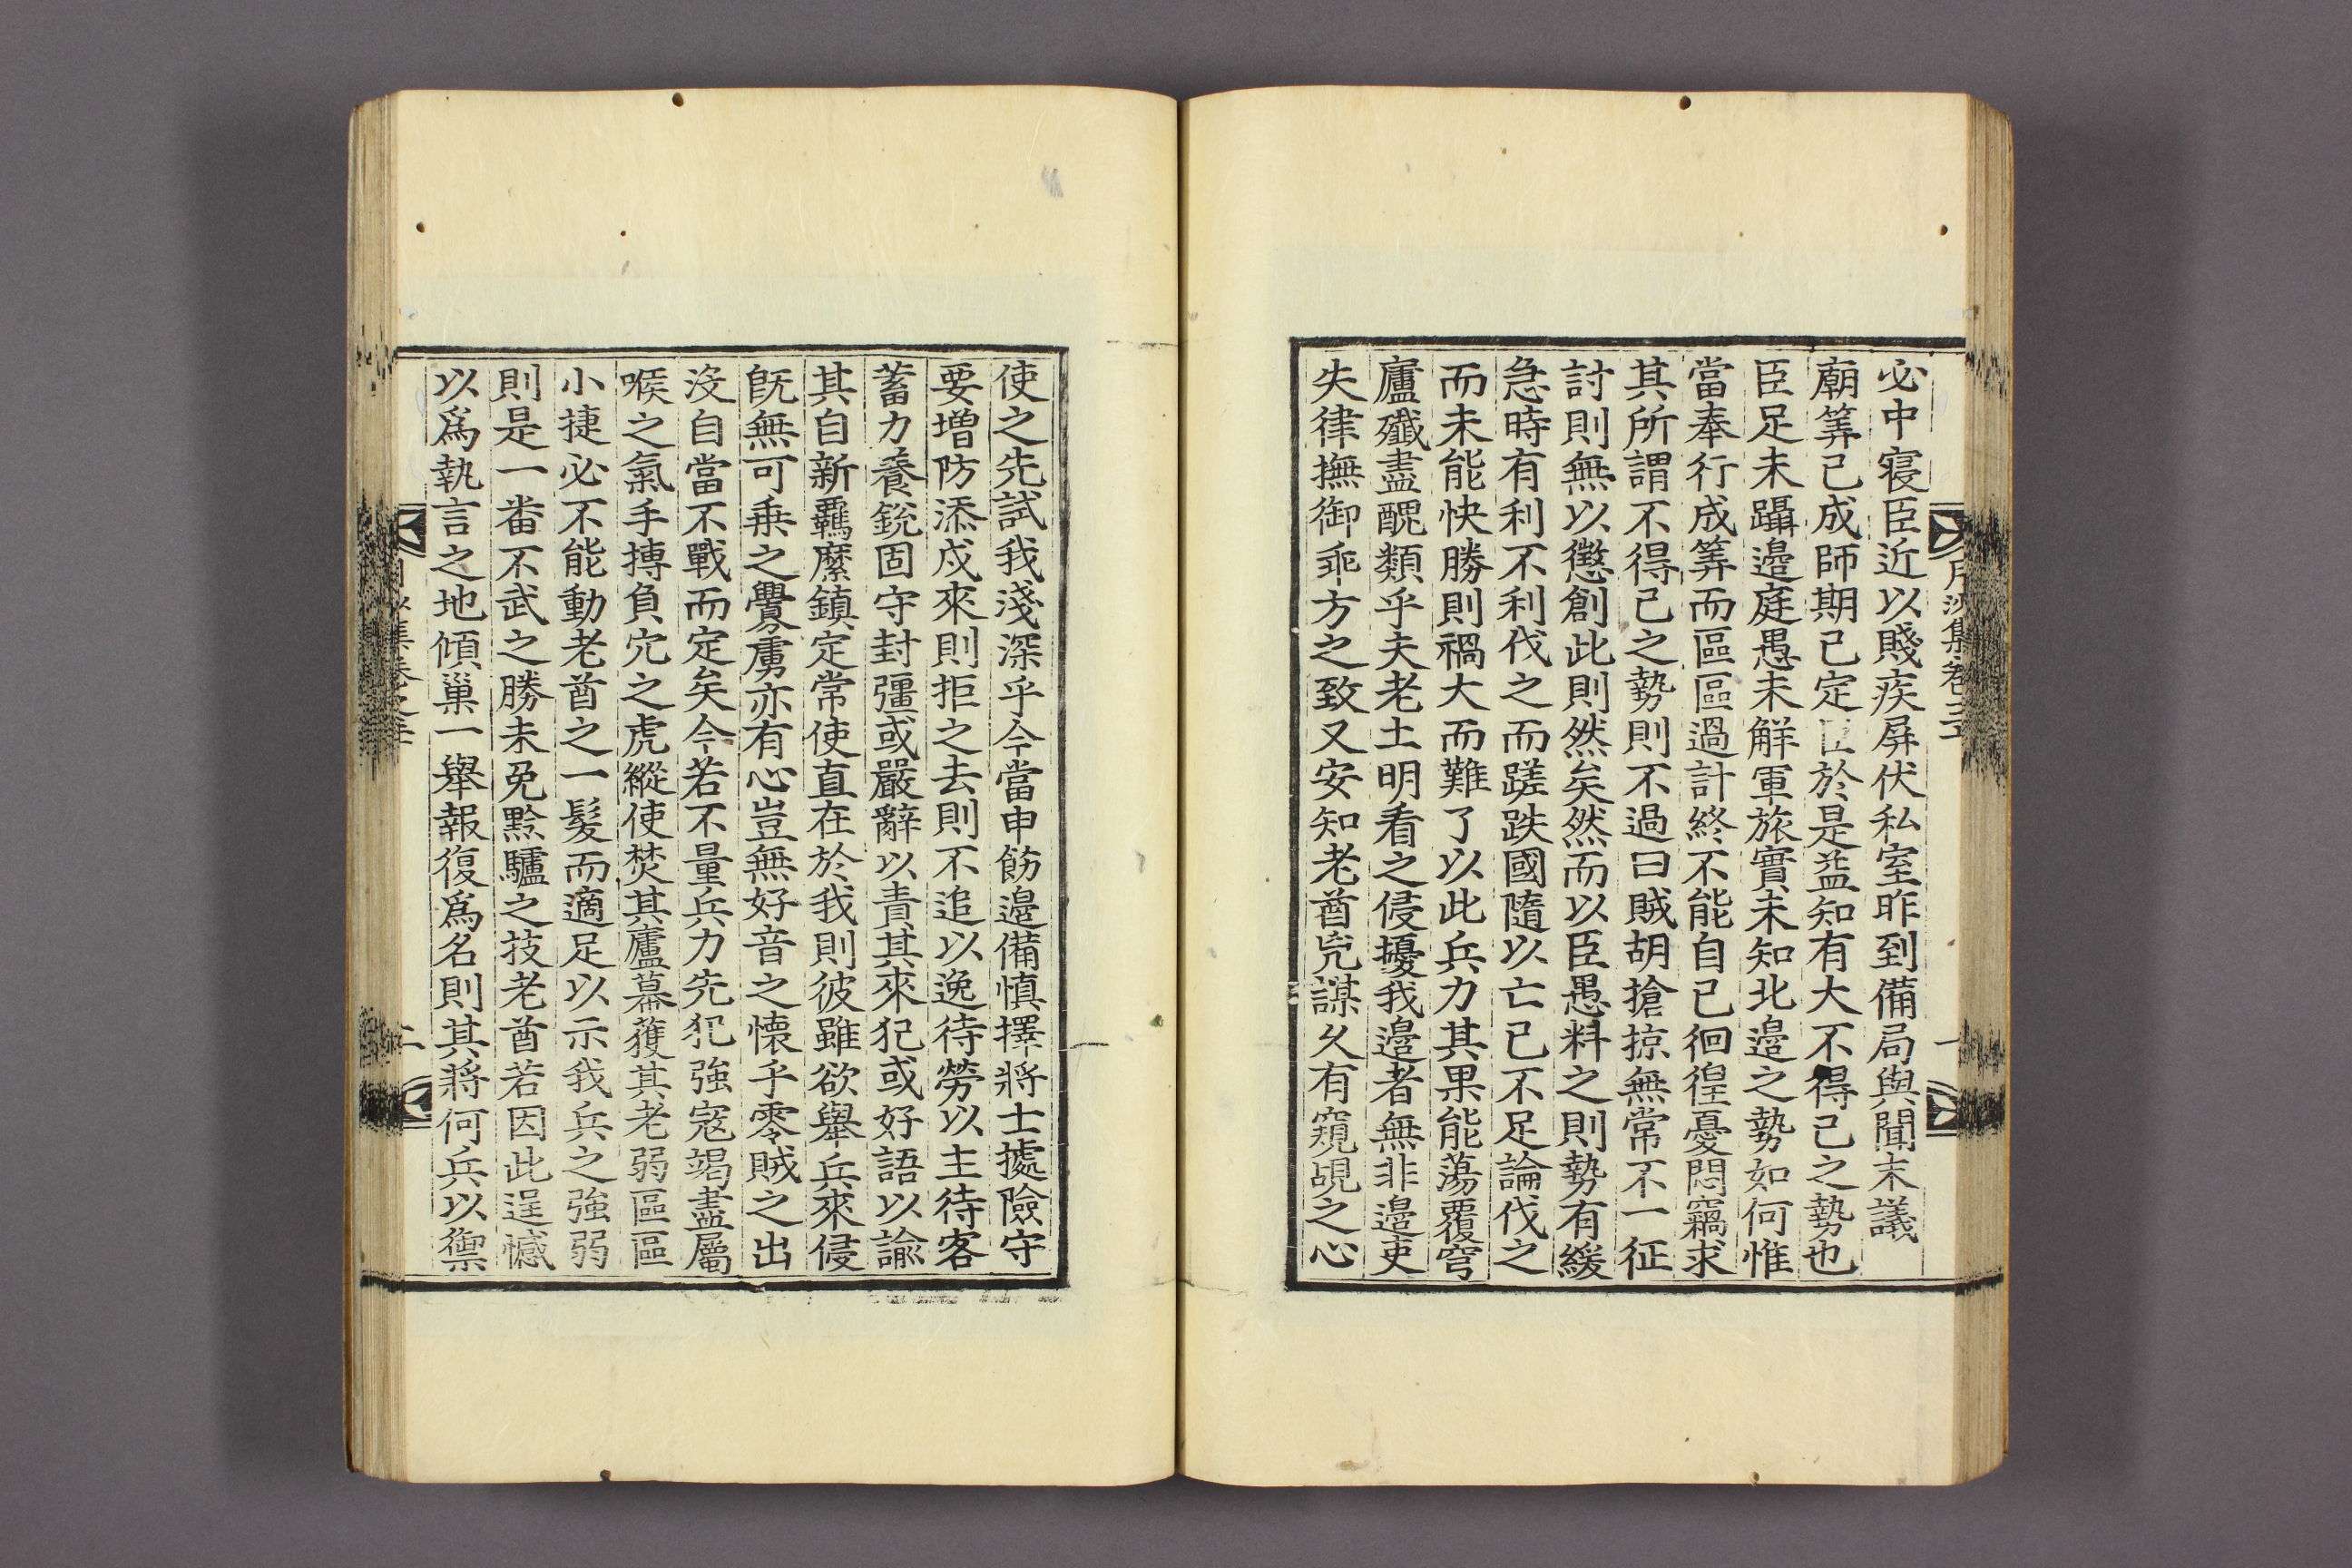 必中寢臣近以賤疾屏伏私室昨到備局與聞末議
廟筭已成師期已定臣於是益知有大不得已之勢也
臣足未躡邉庭愚未觧軍旅實未知北邉之勢如何惟
當奉行成筭而區區過計終不能自已徊徨憂悶竊求
其所謂不得已之勢則不過曰賊胡搶掠無常不一征
討則無以懲創此則然矣然而以臣愚料之則勢有緩
急時有利不利伐之而蹉跌國隨以亡已不足論伐之
而未能快勝則禍大而難了以此兵力其果能蕩覆穹
廬殲盡醜類乎夫老土明看之侵擾我邉者無非邉吏
失律撫御乖方之致又安知老酋兇謀久有窺覘之心
使之先試我淺深乎今當申飭邉備慎擇將士據險守
要增防添戍來則拒之去則不追以逸待勞以主待客
蓄力養銳固守封疆或嚴辭以責其來犯或好語以諭
其自新羈縻鎮定常使直在於我則彼雖欲舉兵來侵
既無可乗之釁虜亦有心豈無好音之懷乎零賊之出
沒自當不戰而定矣今若不量兵力先犯強寇竭盡屬
喉之氣手搏負穴之虎縱使焚其廬幕獲其老弱區區
小捷必不能動老酋之一髮而適足以示我兵之強弱
則是一番不武之勝未免黔驢之技老酋若因此逞憾
以爲執言之地傾巢一舉報復爲名則其將何兵以禦
月沙集卷三十
一
二